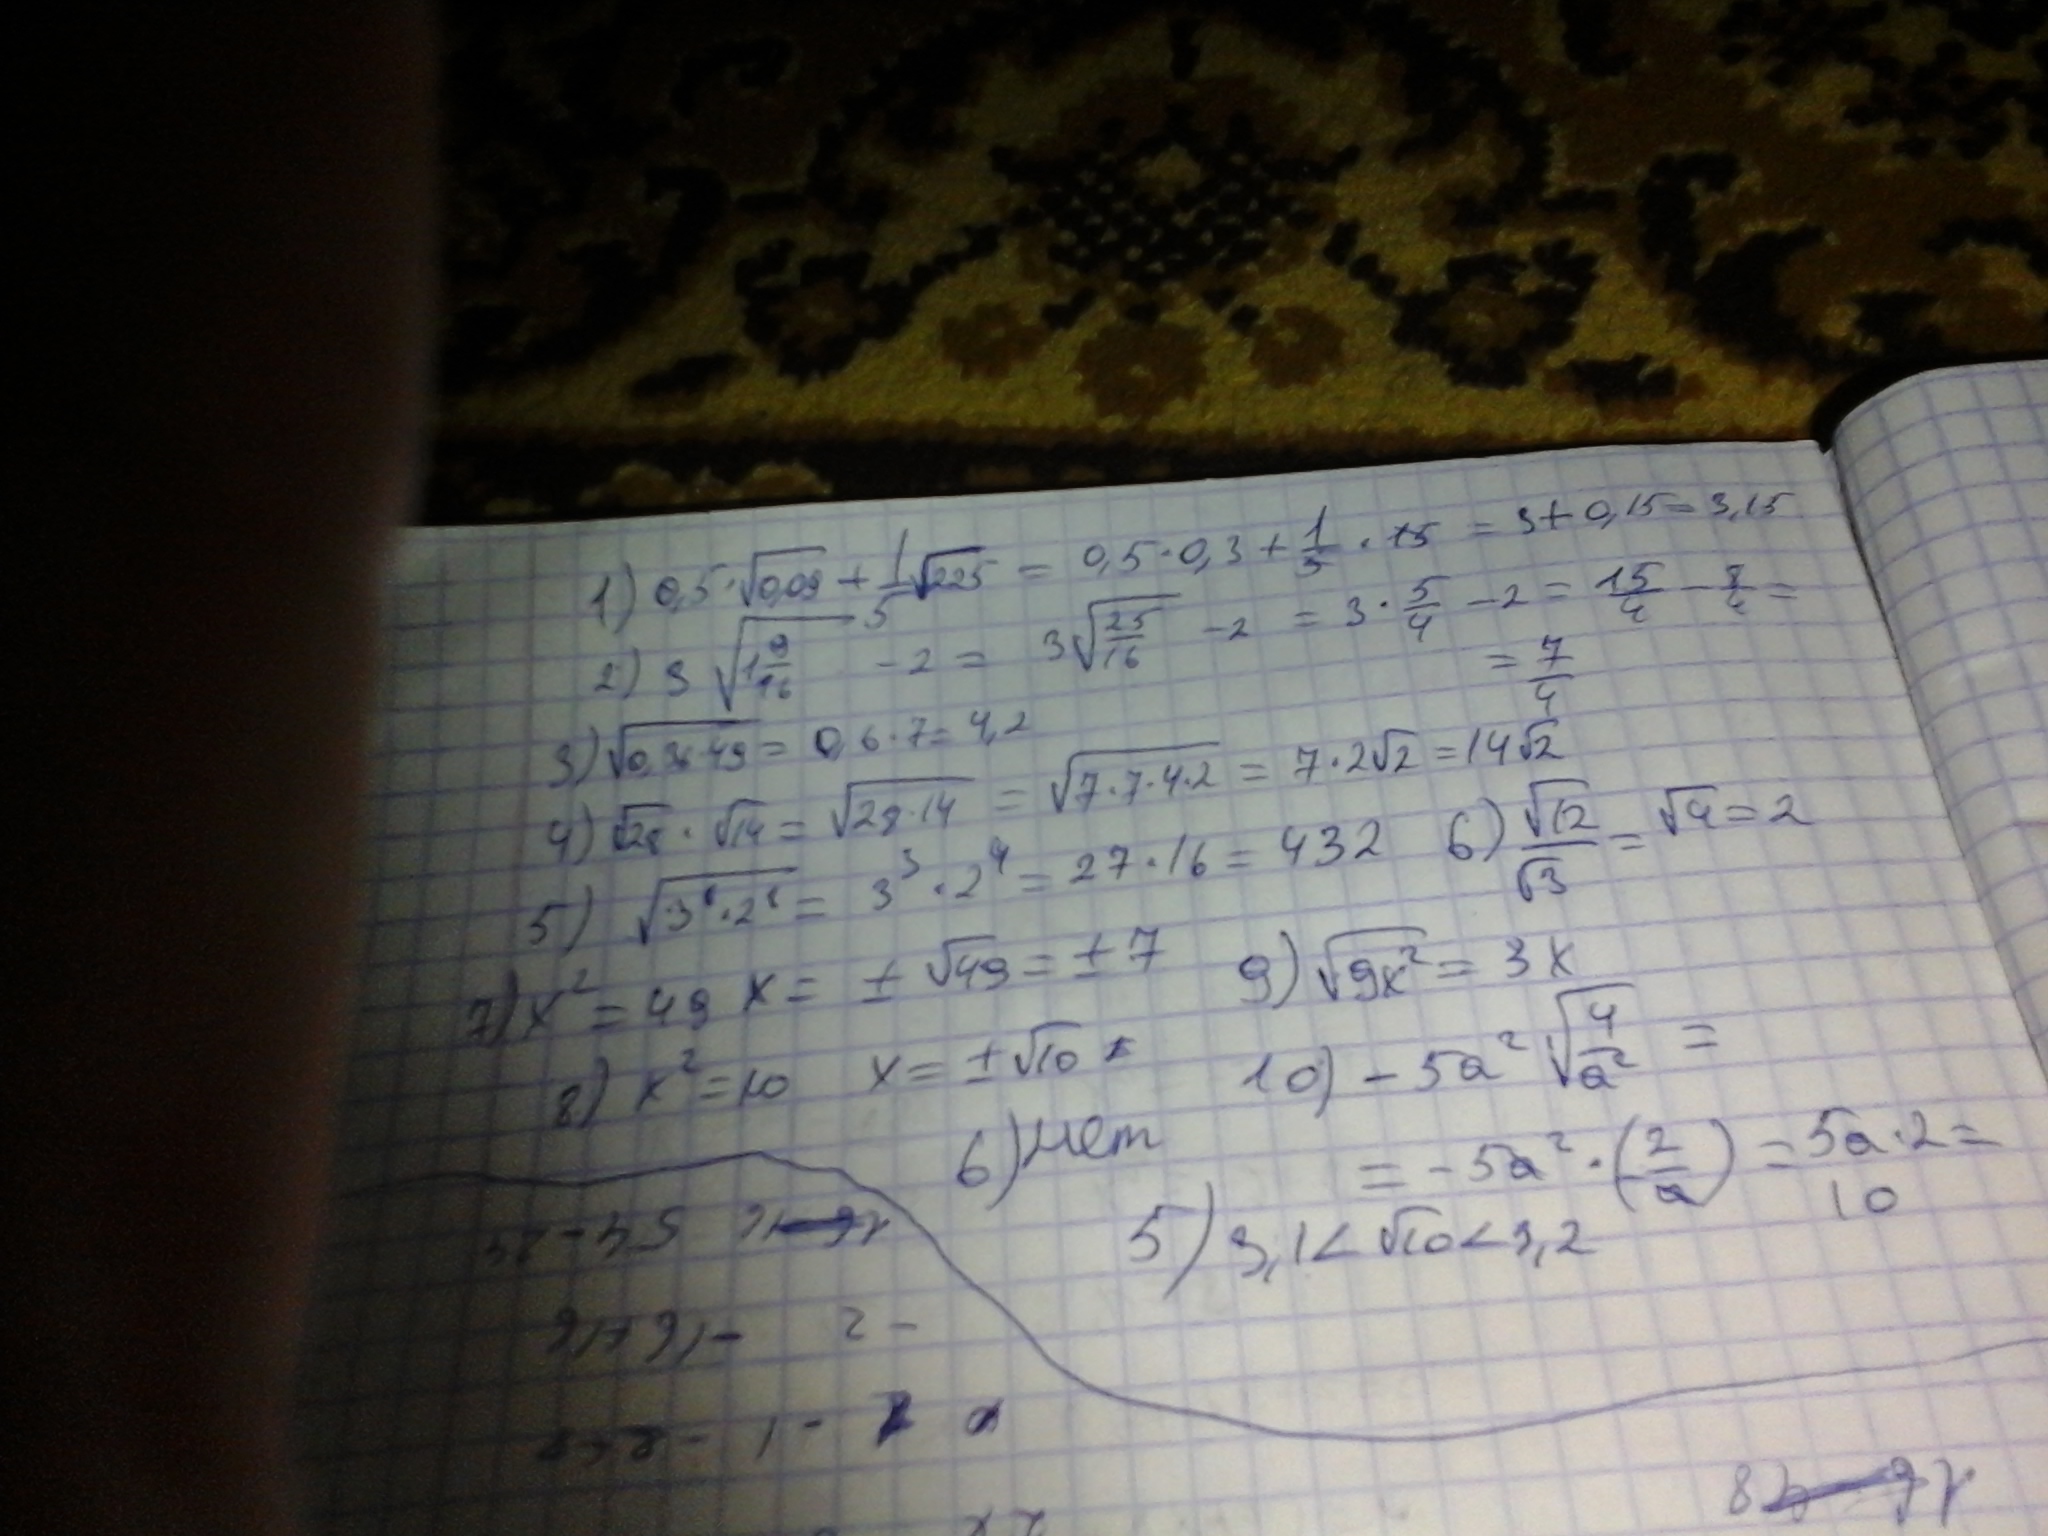 1) 0,5·√0,09 + 1/5 √225 = 0,5·0,3 + 1/5 · 15 = 3+0,15=3,15
2) 3 √1 9/16 - 2 = 3√25/16 - 2 = 3·5/4 - 2 = 15/4 - 8/4 =
= 7/4
3) √0,36·49 = 0,6·7= 4,2
4) √28 · √14 = √28·14 = √7·7·4·2 = 7·2√2 = 14√2
5) √3⁶·2⁸ = 3³·2⁴ = 27·16 = 432 6) √12/√3 = √4 = 2
7) x² = 49 x = ± √49 = ± 7 9) √9x² = 3x
8) x² = 10 x = ±√10 10) -5a² √4/a² =
6) нет = -5a²·(-2/a) = 5a·2=
10
5) 3,1< √10<3,2